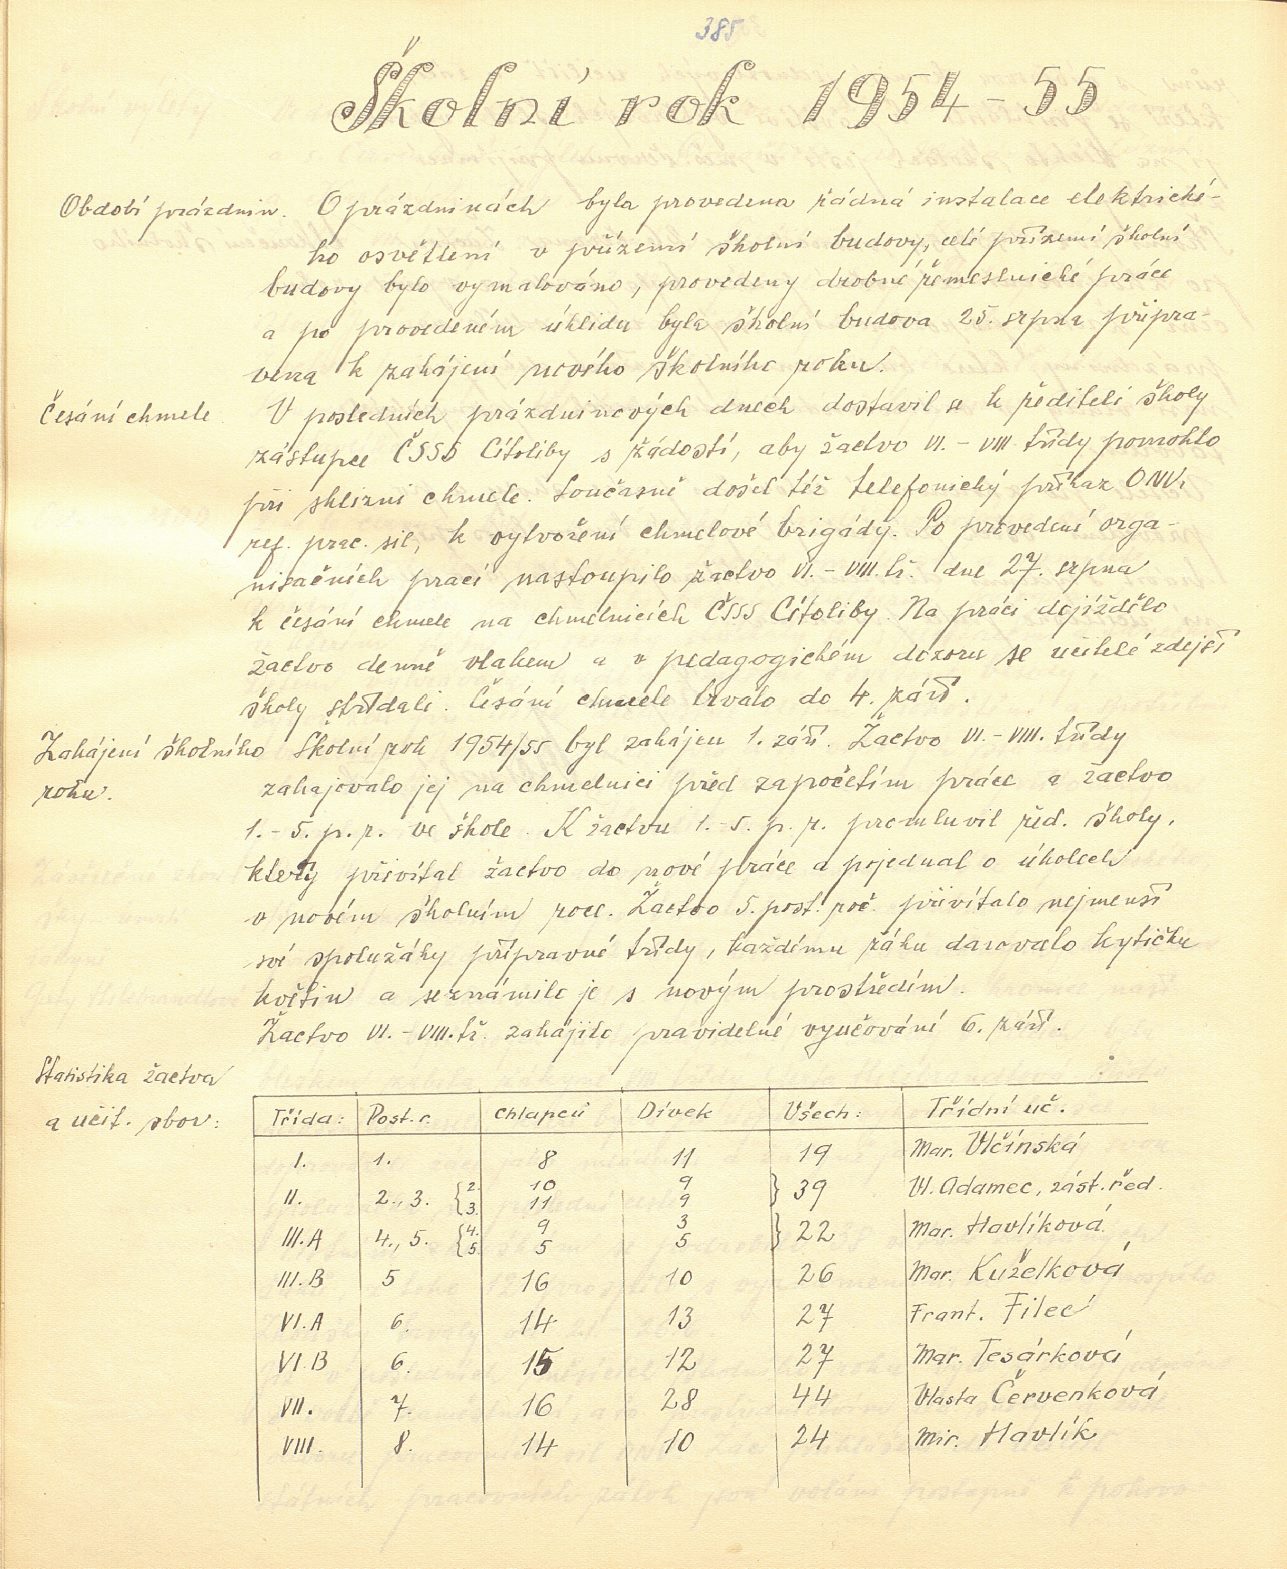 385
Školní rok 1954-55
Období prázdnin. O prázdninách byla provedena řádná instalace elektrické-
ho osvětlení v přízemí školní budovy, celé přízemí školní
budovy bylo vymalováno, provedeny drobné řemeslnické práce
a po provedeném úklidu byla školní budova 25. srpna připra-
vena k zahájení nového školního roku.
Česání chmele V posledních prázdninových dnech dostavil se k řediteli školy
zástupce ČSSS Cítoliby s žádostí, aby žactvo VI. - VIII. třídy pomohlo
při sklizni chmele. Současně došel též telefonický příkaz ONV.
ref. prac. sil, k vytvoření chmelové brigády. Po provedení orga-
nisačních prací nastoupilo žactvo VI. - VIII. tř. dne 27. srpna
k česání chmele na chmelnicích ČSSS Cítoliby. Na práci dojíždělo
žactvo denně vlakem a v pedagogickém dozoru se učitelé zdejší
školy střídali. Česání chmele trvalo do 4. září.
Zahájení školního Školní rok 1954/55 byl zahájen 1. září. Žactvo VI. - VIII. třídy
roku. zahajovalo jej na chmelnici před započetím práce a žactvo
1. - 5. p. r. ve škole. K žactvu 1. - 5. p. r. promluvil řed. školy,
který přivítal žactvo do nové práce a pojednal o úkolech
v novém školním roce. Žactvo 5. post. roč. přivítalo nejmenší
své spolužáky přípravné třídy, každému žáku darovalo kytičku
květin a seznámilo je s novým prostředím.
Žactvo VI. - VIII. tř. zahájilo pravidelné vyučování 6. září.
Statistika žactva
a učit. sbor:
Třída: Post. r. Chlapců Dívek Všech: Třídní uč.
I. 1. 8 11 19 Mar. Vlčínská
II. 2., 3. { 2. 10 9 } 39 Vl. Adamec, zást. řed.
3. 11 9
III.A 4., 5. { 4. 9 3 } 22 Mar. Havlíková
5. 5 5
III.B 5 16 10 26 Mar. Kuželková
VI.A 6. 14 13 27 Frant. Filec
VI.B 6. 15 12 27 Mar. Tesárková
VII. 7. 16 28 44 Vlasta Červenková
VIII. 8. 14 10 24 Mir. Havlík